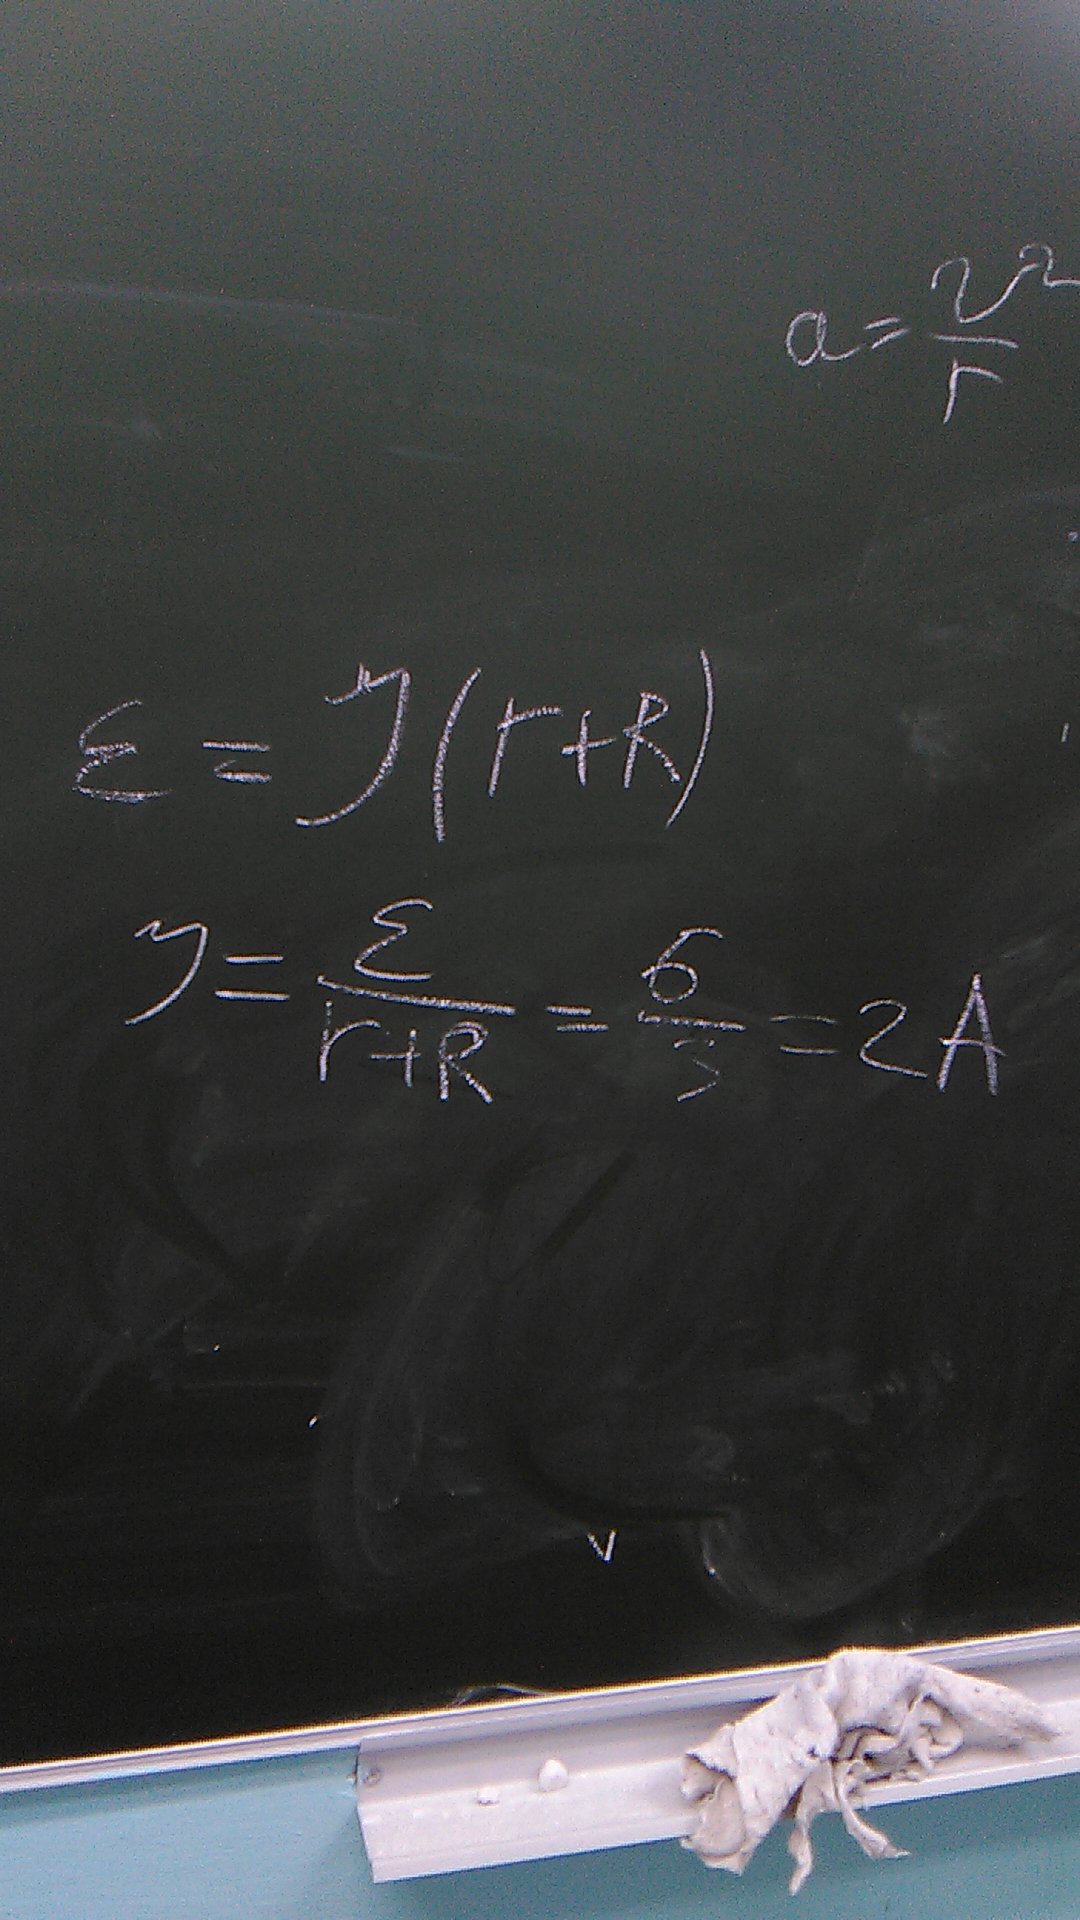 a = v²/r
ε = J(r+R)
J = ε/(r+R) = 6/3 = 2A
v